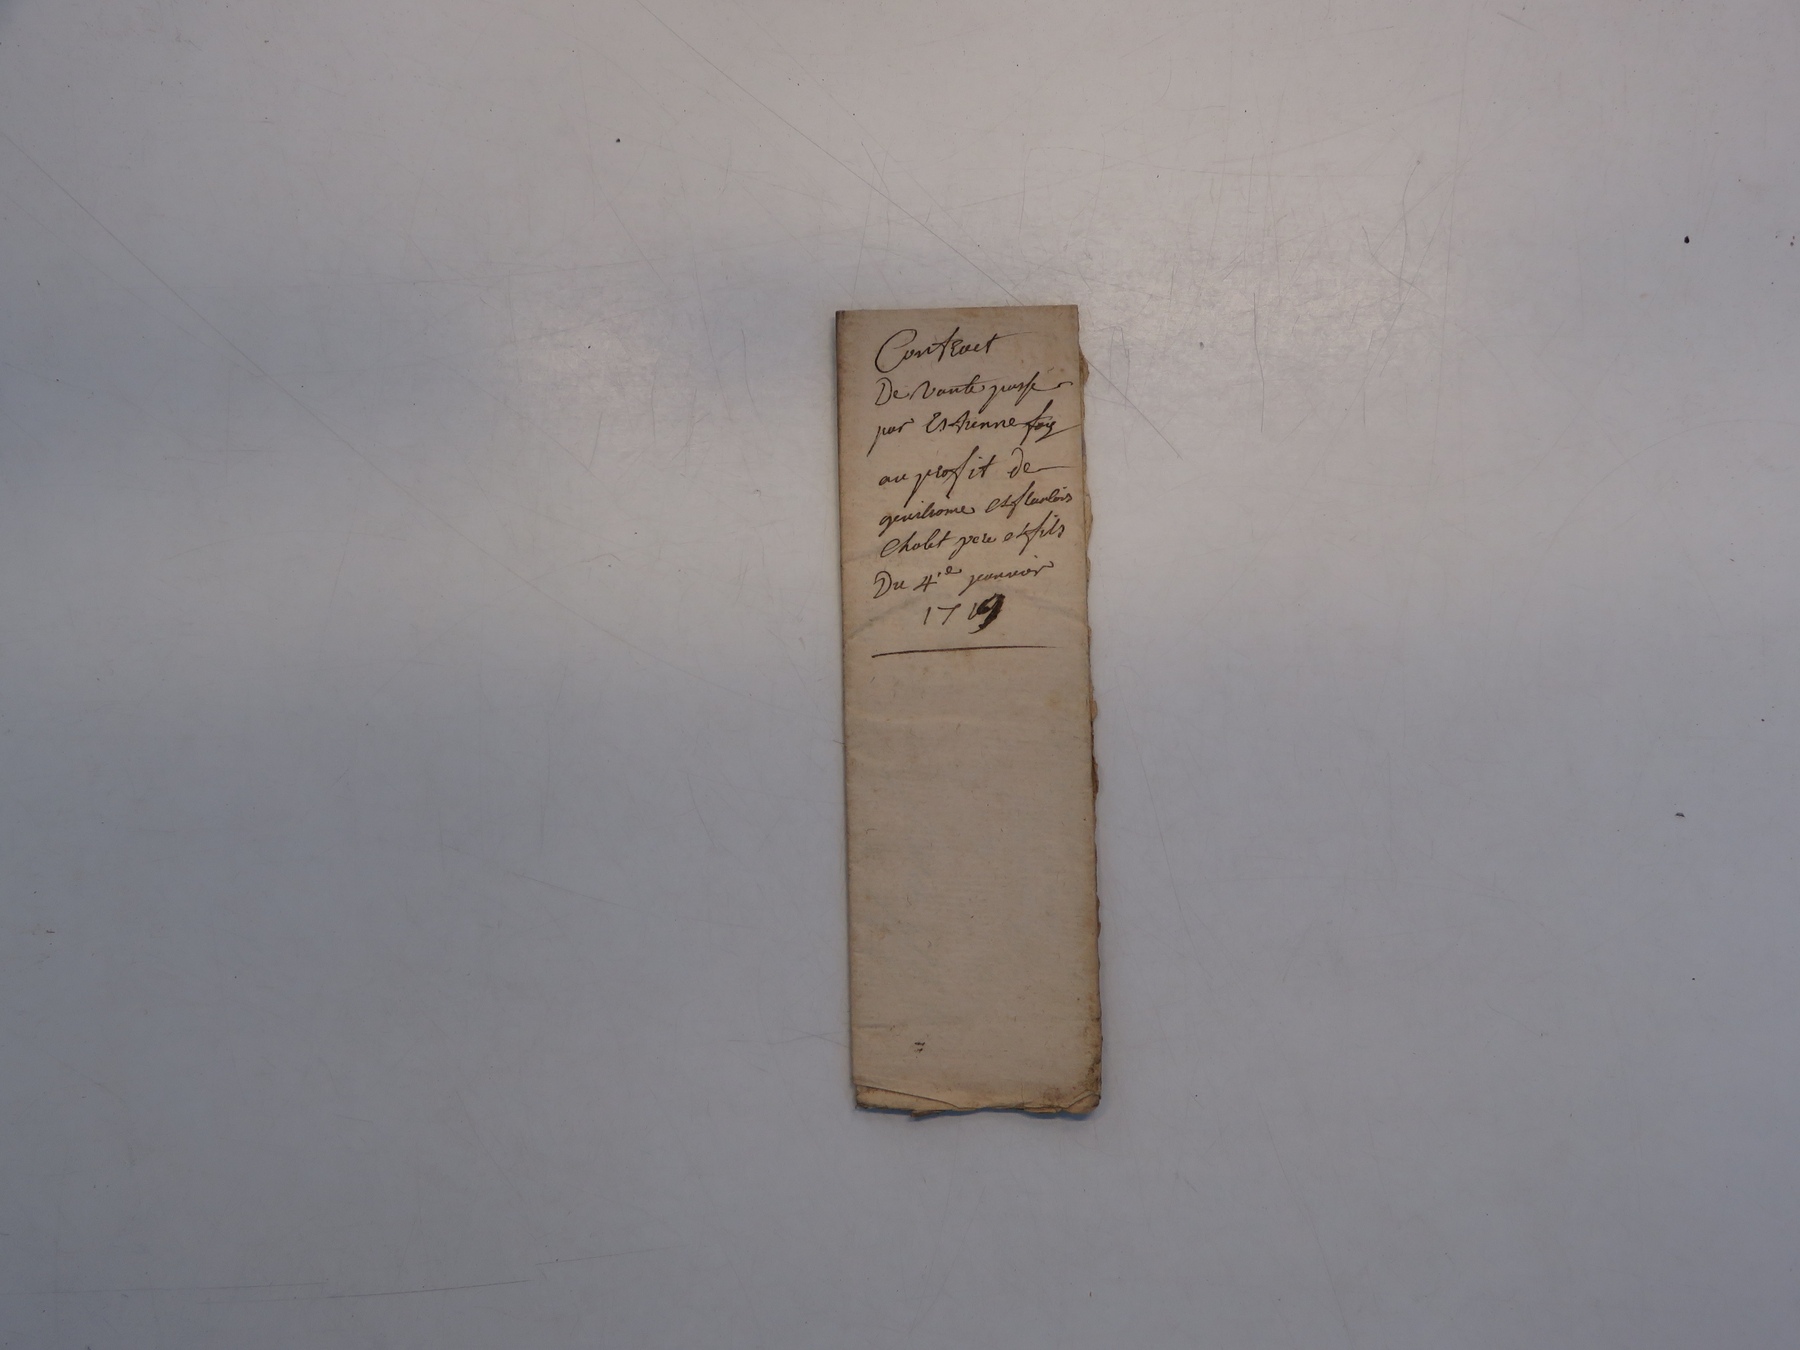 Contract
De vante passe
par Estienne foy
au profit de
guilhome et francois
Cholet pere et fils
Du 4.e janvier
1719